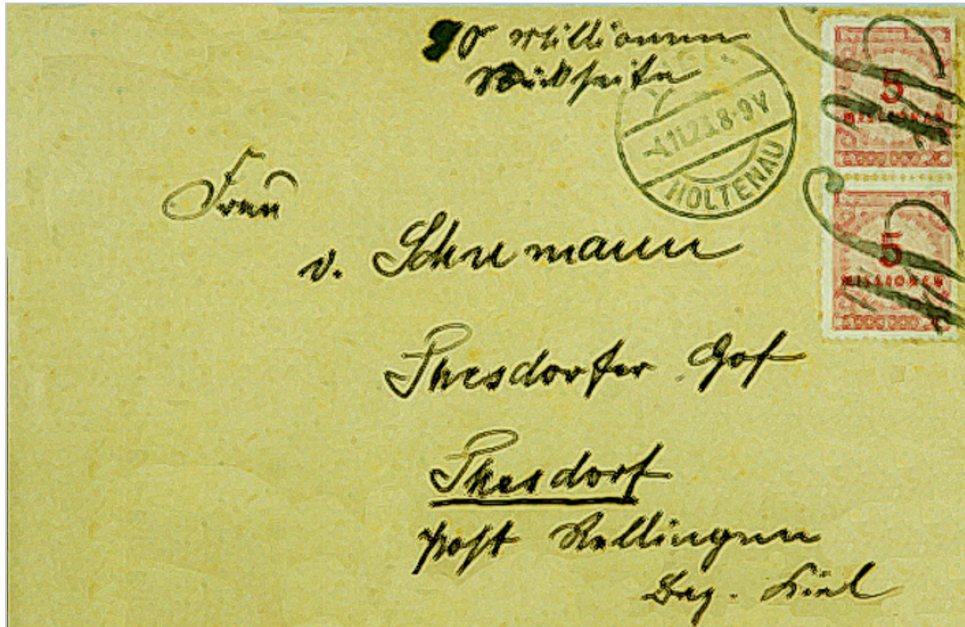 90 Millionen
Rückseite
4.11.23.8-9V
HOLTENAU
5
MILLIONEN
5
MILLIONEN
Frau
v. Schumann
Thesdorfer Hof
Thesdorf
Post Rellingen
Bez. Kiel